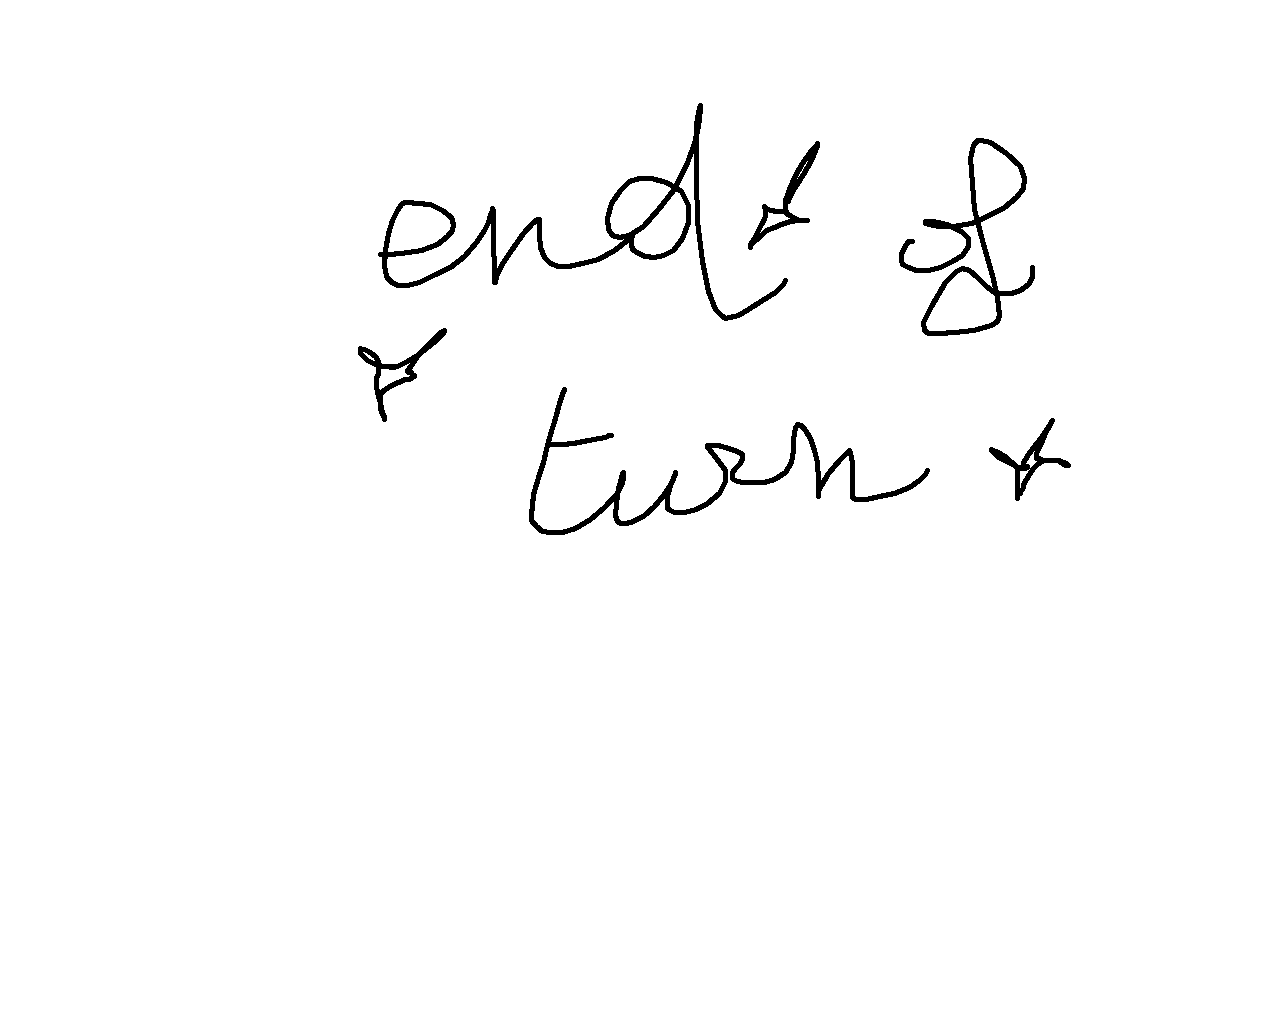 end of
turn